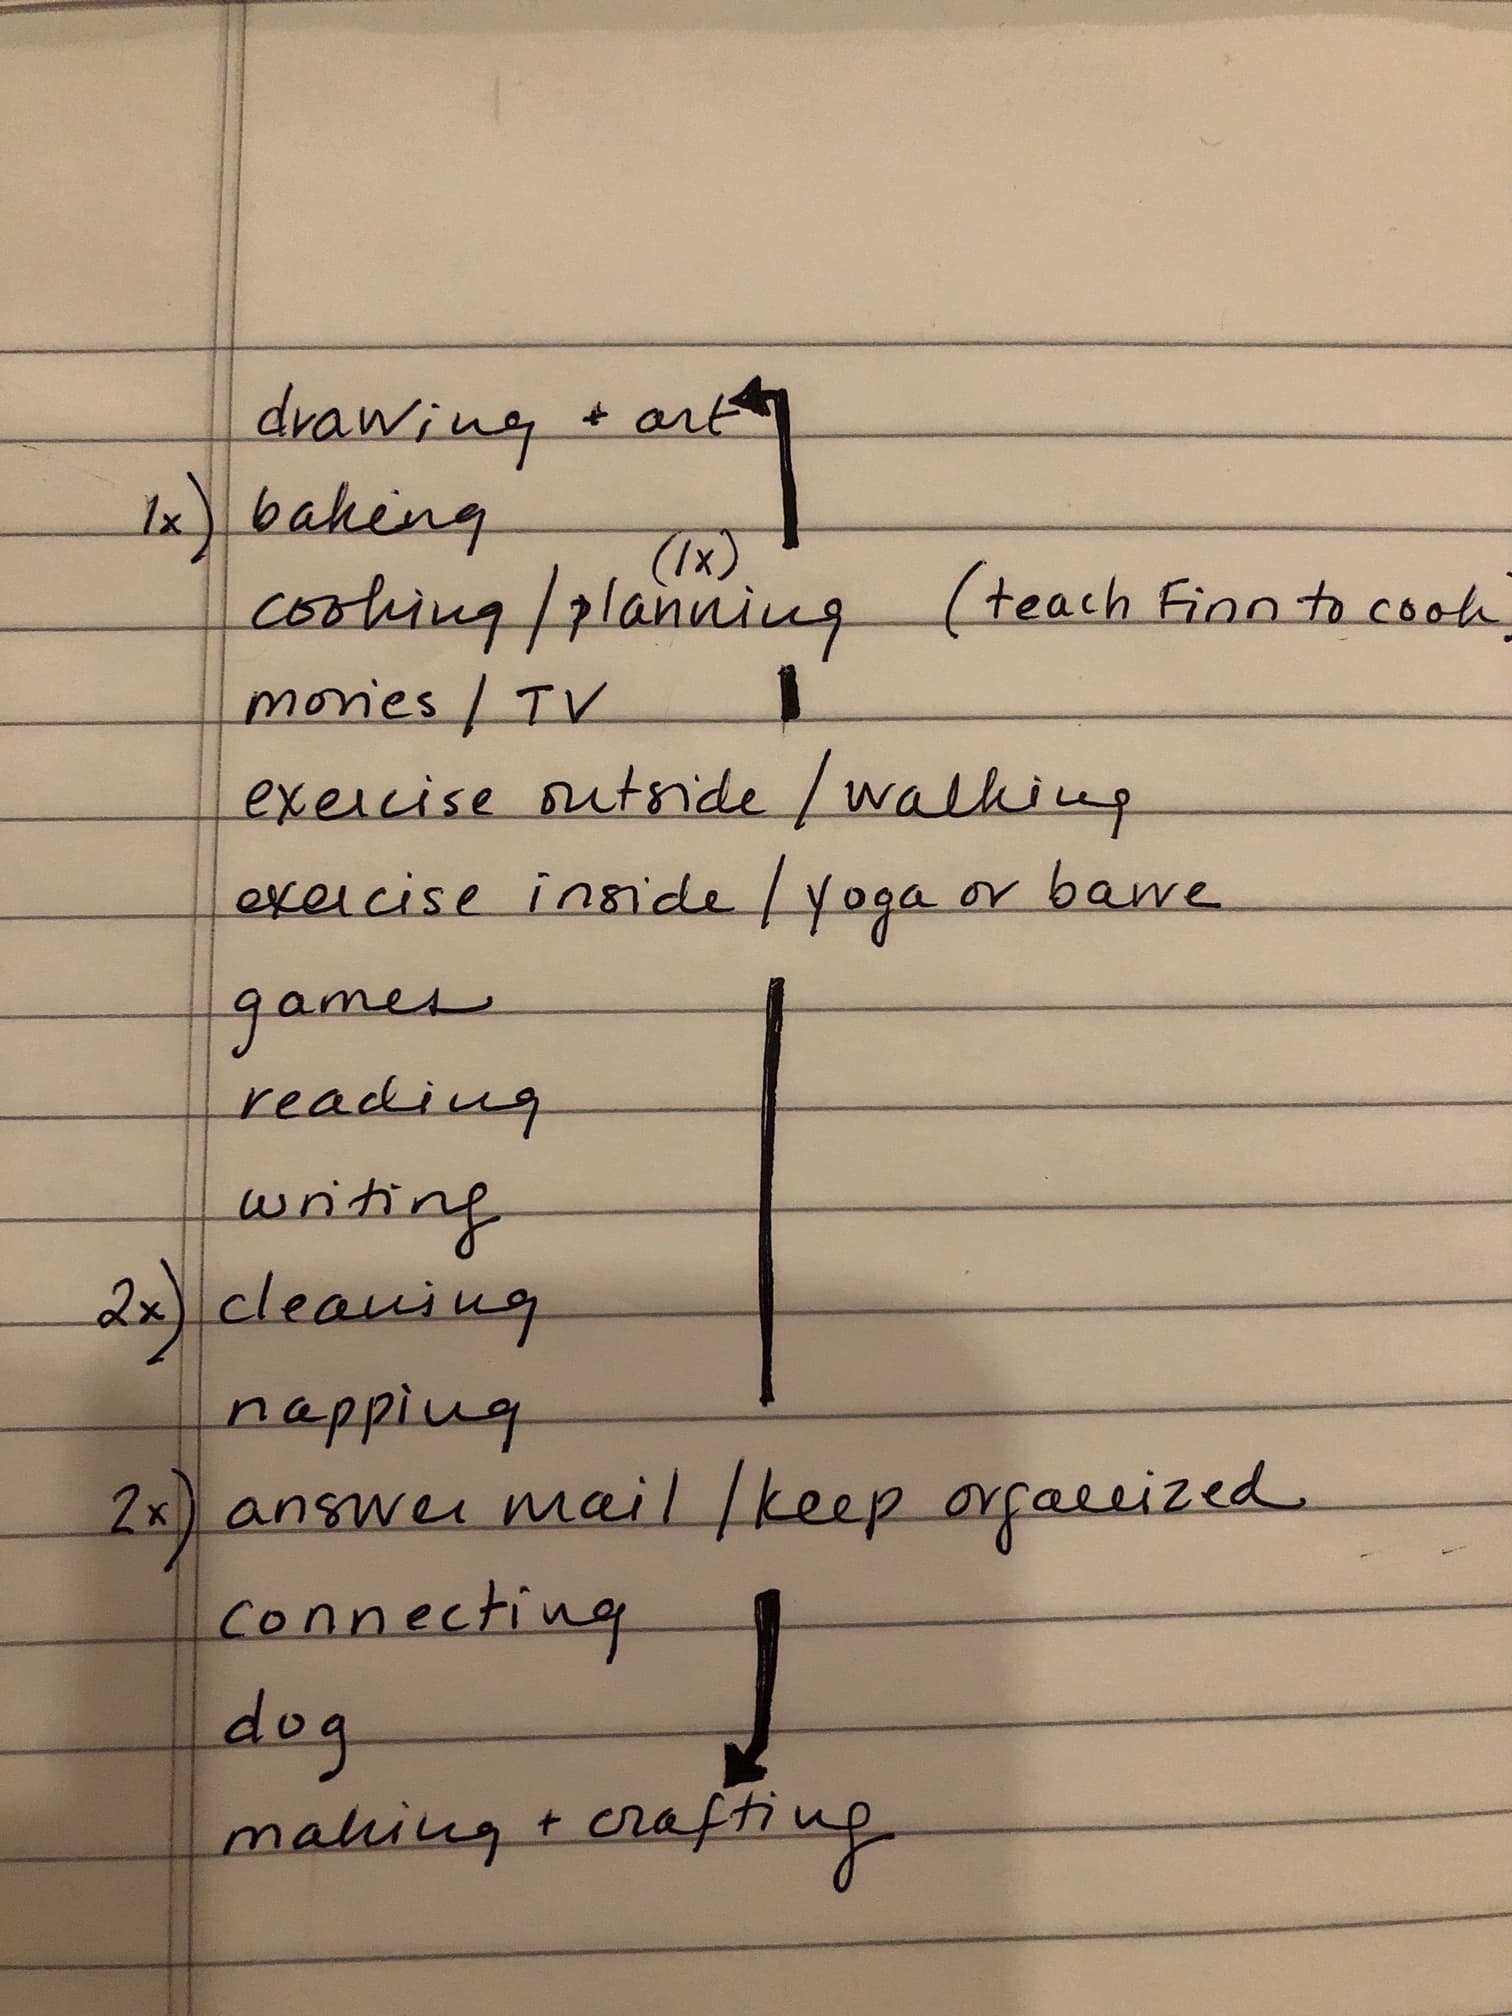 drawing + art
1x) baking
(1x)
cooking / planning (teach Finn to cook)
movies / TV
exercise outside / walking
exercise inside / yoga or barre
games
reading
writing
2x) cleaning
napping
2x) answer mail / keep organized
connecting
dog
making + crafting